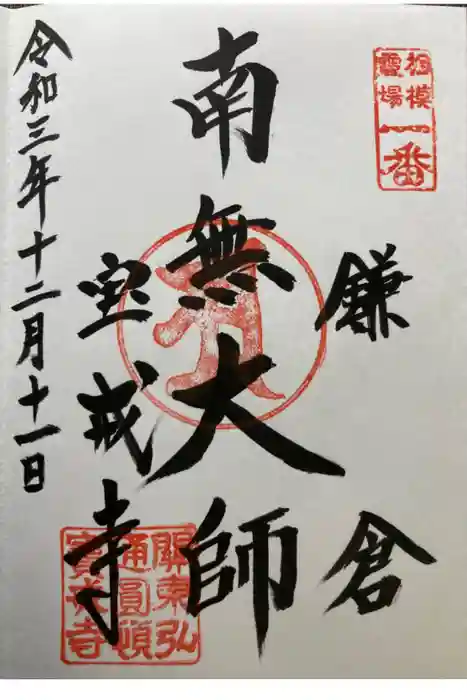 相模
霊場
一番
鎌倉
南無大師
宝戒寺
令和三年十二月十一日
関東弘
通圓頓
寳戒寺